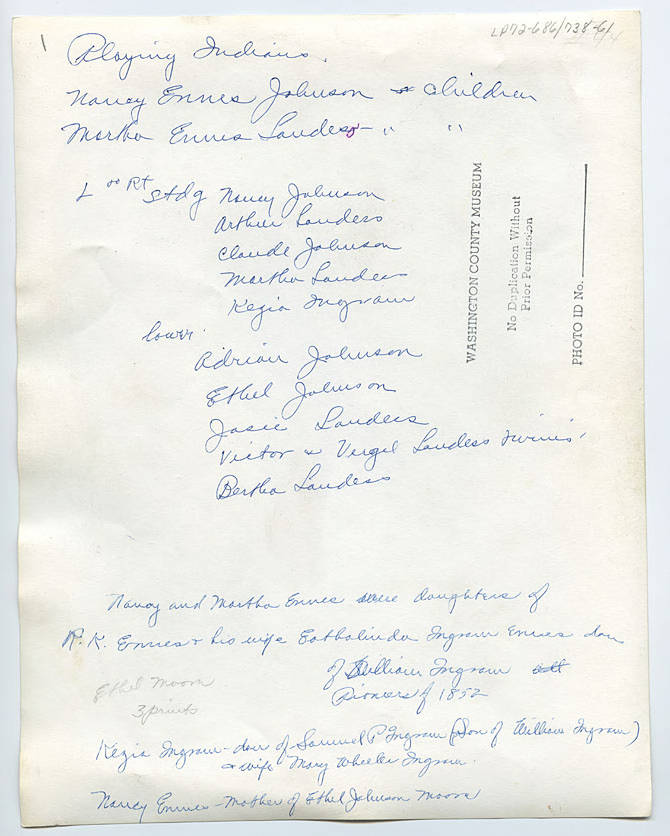 1
LP72-686/738-61
Playing Indians.
Nancy Ennes Johnson & children
Martha Ennes Landess - " "
L to Rt
Stdg Nancy Johnson
Arthur Landess
Claude Johnson
Martha Landess
Kezia Ingram
lower.
Adrian Johnson
Ethel Johnson
Josie Landess
Victor & Vergil Landess twins
Bertha Landess
WASHINGTON COUNTY MUSEUM
No Duplication Without
Prior Permission
PHOTO ID No.
Nancy and Martha Ennes were daughters of
R. K. Ennes & his wife Ingram Ennes dau
of William Ingram
Pioneers of 1852
Ethel Moorn
3 prints
Kezia Ingram - dau of Samuel P Ingram (Son of William Ingram)
& wife Mary Wheeler Ingram.
Nancy Ennes - Mother of Ethel Johnson Moorn